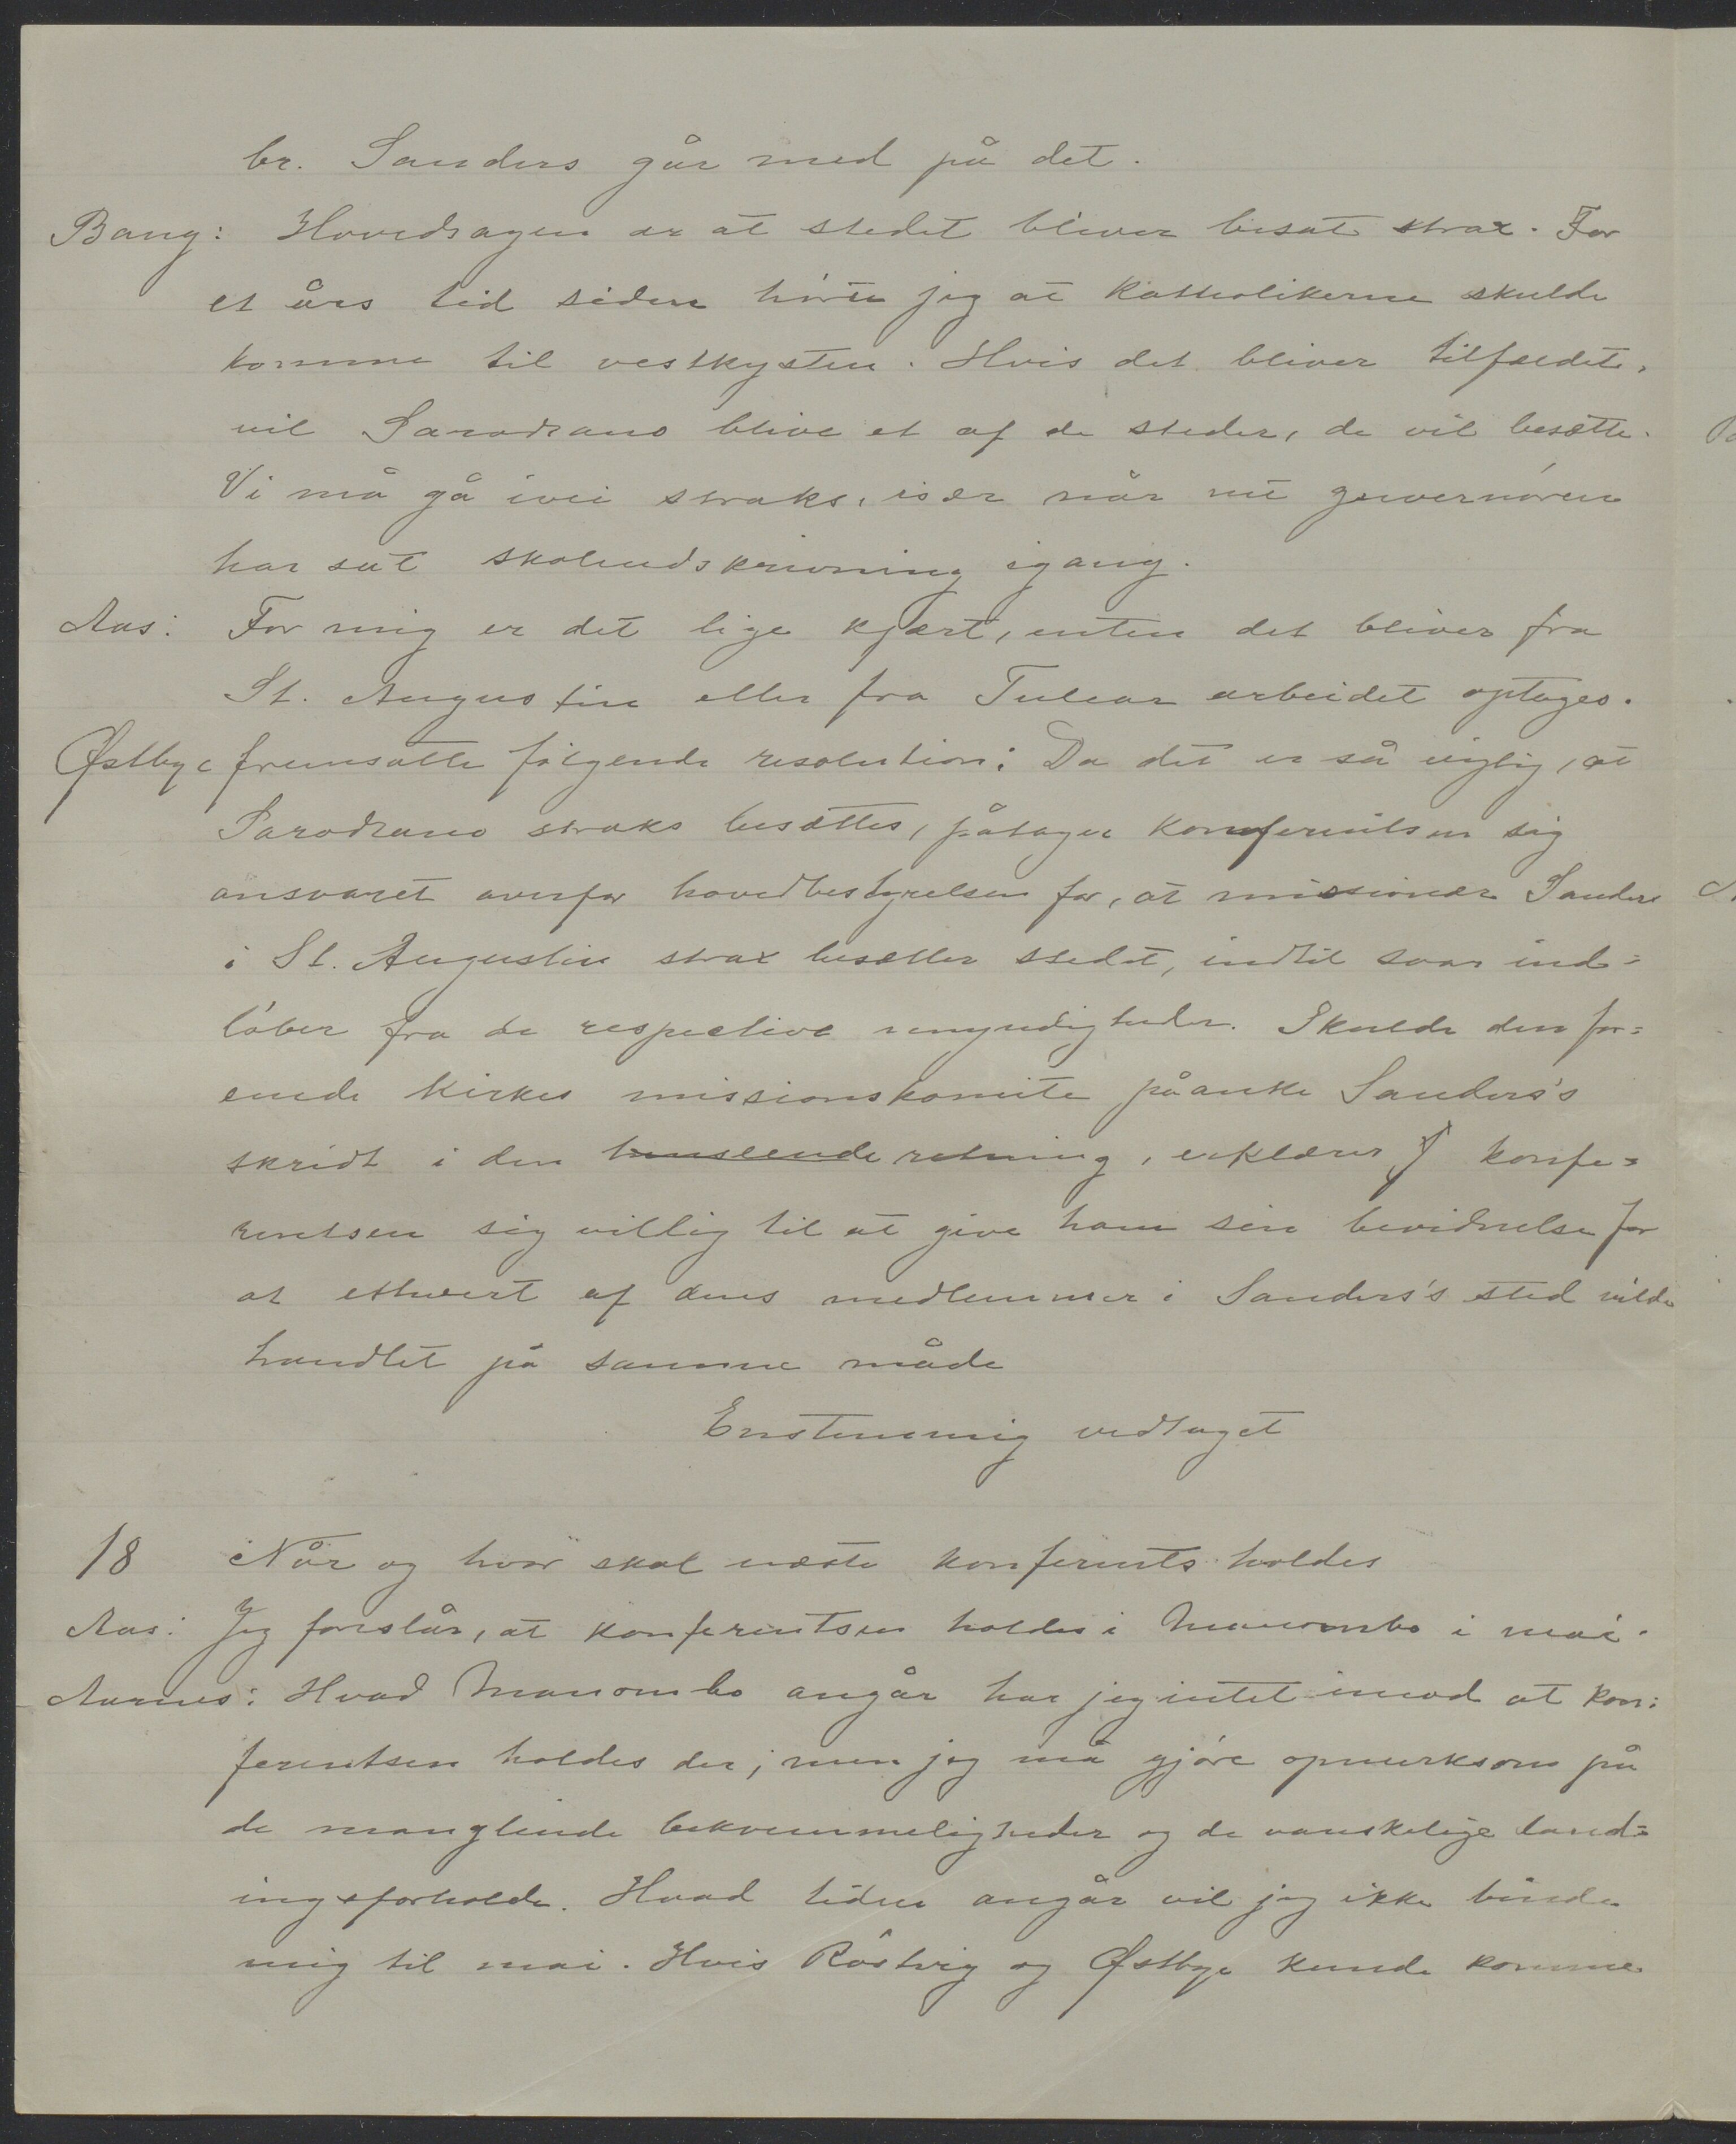 br. Sanders går med på det.
Bang: Hovedsagen er at stedet bliver besat strax. For
et års tid siden hørte jeg at Katholikerne skulde
komme til vestkysten. Hvis det bliver tilfældet,
vil Sarodrano blive et af de steder, de vil besætte.
Vi må gå ivei straks, især når nu guvernøren
har sat skoleudskrivning igang.
Aas: For mig er det lige kjært, enten det bliver fra
St. Augustin eller fra Tulear arbeidet optages.
Østbye fremsatte følgende resolution: Da det er så vigtig, at
Sarodrano straks besættes, påtager konferentsen sig
ansvaret overfor hovedbestyrelsen for, at missionær Sanders
i St. Augustin strax besætter stedet, indtil svar ind=
løber fra de respective myndigheder. Skulde den for=
enede kirkes missionskomite påanke Sanders's
skridt i den henseende retning, erklærer konfe=
rentsen sig villig til at give ham sin bevidnelse for
at ethvert af dens medlemmer i Sanders's sted vilde
handlet på samme måde
Enstemmig vedtaget
18 Når og hvor skal næste konferents holdes
Aas: Jeg foreslår, at konferentsen holdes i Manombo i mai.
Aarnes: Hvad Manombo angår har jeg intet imod at kon=
ferentsen holdes der; men jeg må gjøre opmerksom på
de manglende bekvemmeligheder og de vanskelige land=
ingsforholde. Hvad tiden angår vil jeg ikke binde
mig til mai. Hvis Røstvig og Østbye kunde komme